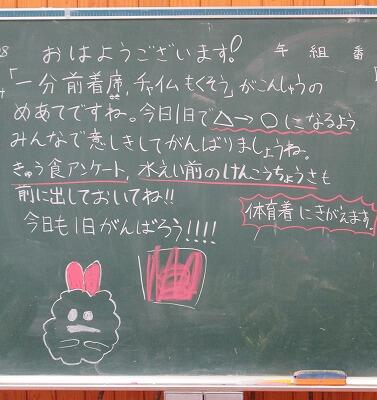 おはようございます!
年 組 番
「一分前着席,チャイムもくそう」がこんしゅうの
めあてですね。今日1日で△→○になるよう
みんなで意しきしてがんばりましょうね。
きゅう食アンケート,水えい前のけんこうちょうさも
前に出しておいてね!!
体育着にきがえます。
今日も1日がんばろう!!!!